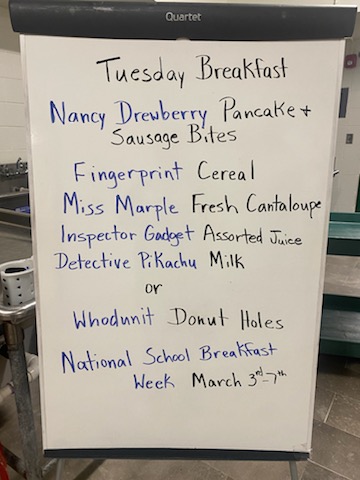 Quartet
Tuesday Breakfast
Nancy Drewberry Pancake +
Sausage Bites
Fingerprint Cereal
Miss Marple Fresh Cantaloupe
Inspector Gadget Assorted Juice
Detective Pikachu Milk
or
Whodunit Donut Holes
National School Breakfast
Week March 3rd-7th